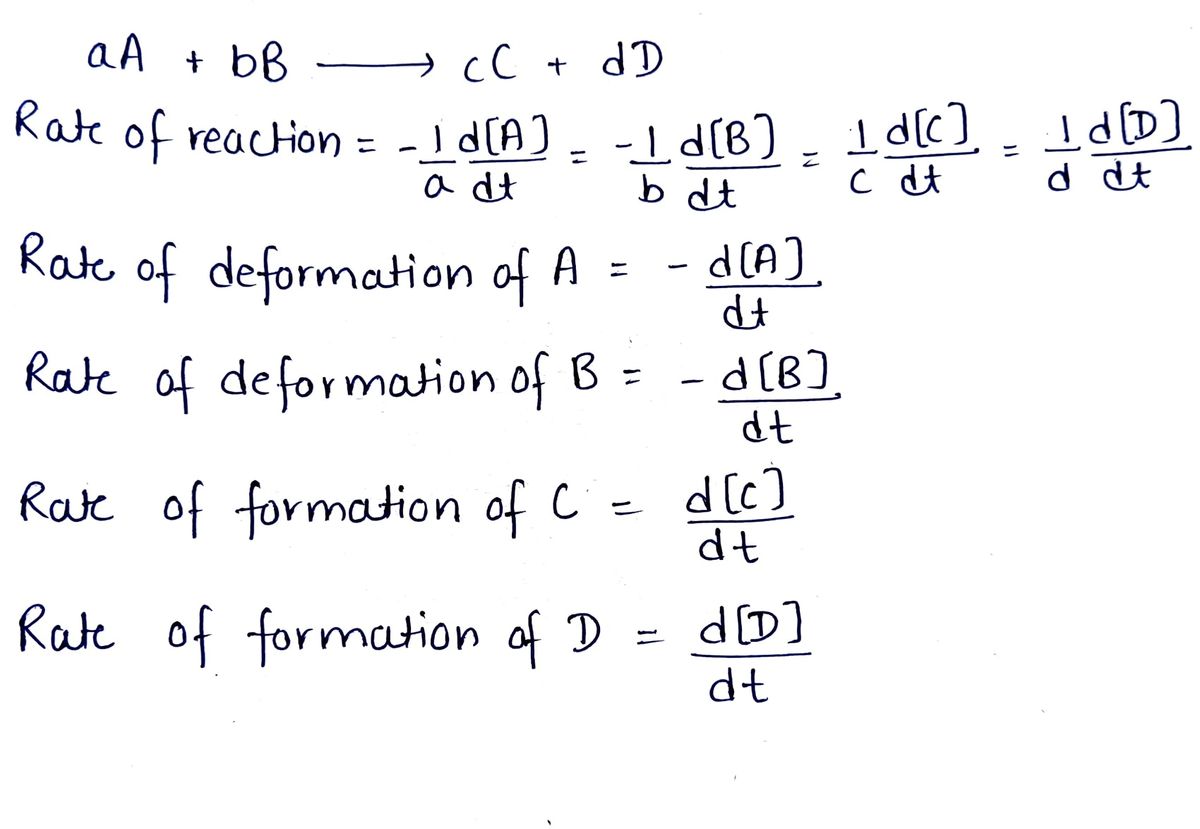 aA + bB ⟶ cC + dD
Rate of reaction = -1/a d[A]/dt = -1/b d[B]/dt = 1/c d[C]/dt = 1/d d[D]/dt
Rate of deformation of A = - d[A]/dt
Rate of deformation of B = - d[B]/dt
Rate of formation of C = d[C]/dt
Rate of formation of D = d[D]/dt